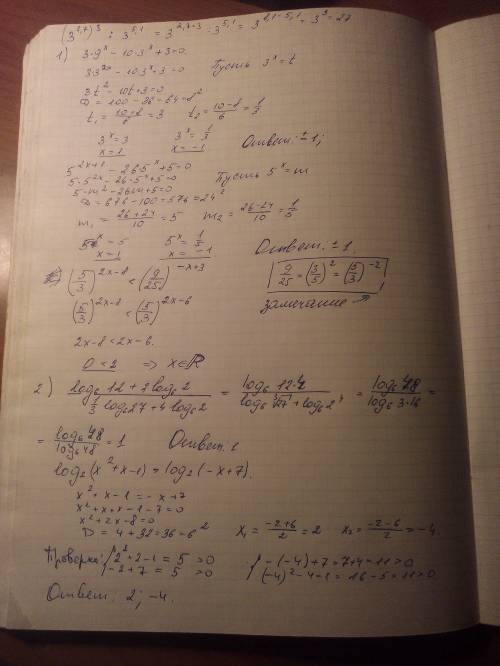 (3^2,7)^3 : 3^5,1 = 3^2,7·3 : 3^5,1 = 3^8,1-5,1 = 3^3 = 27
1) 3·9^x - 10·3^x + 3 = 0
3·3^2x - 10·3^x + 3 = 0 Пусть 3^x = t
3t^2 - 10t + 3 = 0
D = 100 - 36 = 64 = 8^2
t1 = (10+8)/6 = 3 t2 = (10-8)/6 = 1/3
3^x = 3 3^x = 1/3
x = 1 x = -1 Ответ: ±1;
5^2x+1 - 26·5^x + 5 = 0
5·5^2x - 26·5^x + 5 = 0 Пусть 5^x = m
5·m^2 - 26m + 5 = 0
D = 676 - 100 = 576 = 24^2
m1 = (26+24)/10 = 5 m2 = (26-24)/10 = 1/5
5^x = 5 5^x = 1/5
x = 1 x = -1 Ответ: ±1.
(5/3)^2x-8 < (9/25)^-x+3 9/25 = (3/5)^2 = (5/3)^-2
(5/3)^2x-8 < (5/3)^2x-6 замечание
2x-8 < 2x-6.
0 < 2 ⇒ x∈R
2) (log6 12 + 2 log6 2)/(1/3 log6 27 + 4 log6 2) = log6 12·4/(log6 ∛27 + log6 2^4) = log6 48/log6 3·16 =
= log6 48/log6 48 = 1 Ответ: 1
log2(x^2+x-1) = log2(-x+7).
x^2 + x - 1 = -x + 7
x^2 + x + x - 1 - 7 = 0
x^2 + 2x - 8 = 0
D = 4 + 32 = 36 = 6^2 x1 = (-2+6)/2 = 2 x2 = (-2-6)/2 = -4.
Проверка: { 2^2 + 2 - 1 = 5 > 0 { -(-4) + 7 = 7 + 4 = 11 > 0
-2 + 7 = 5 > 0 (-4)^2 - 4 - 1 = 16 - 5 = 11 > 0
Ответ: 2; -4.